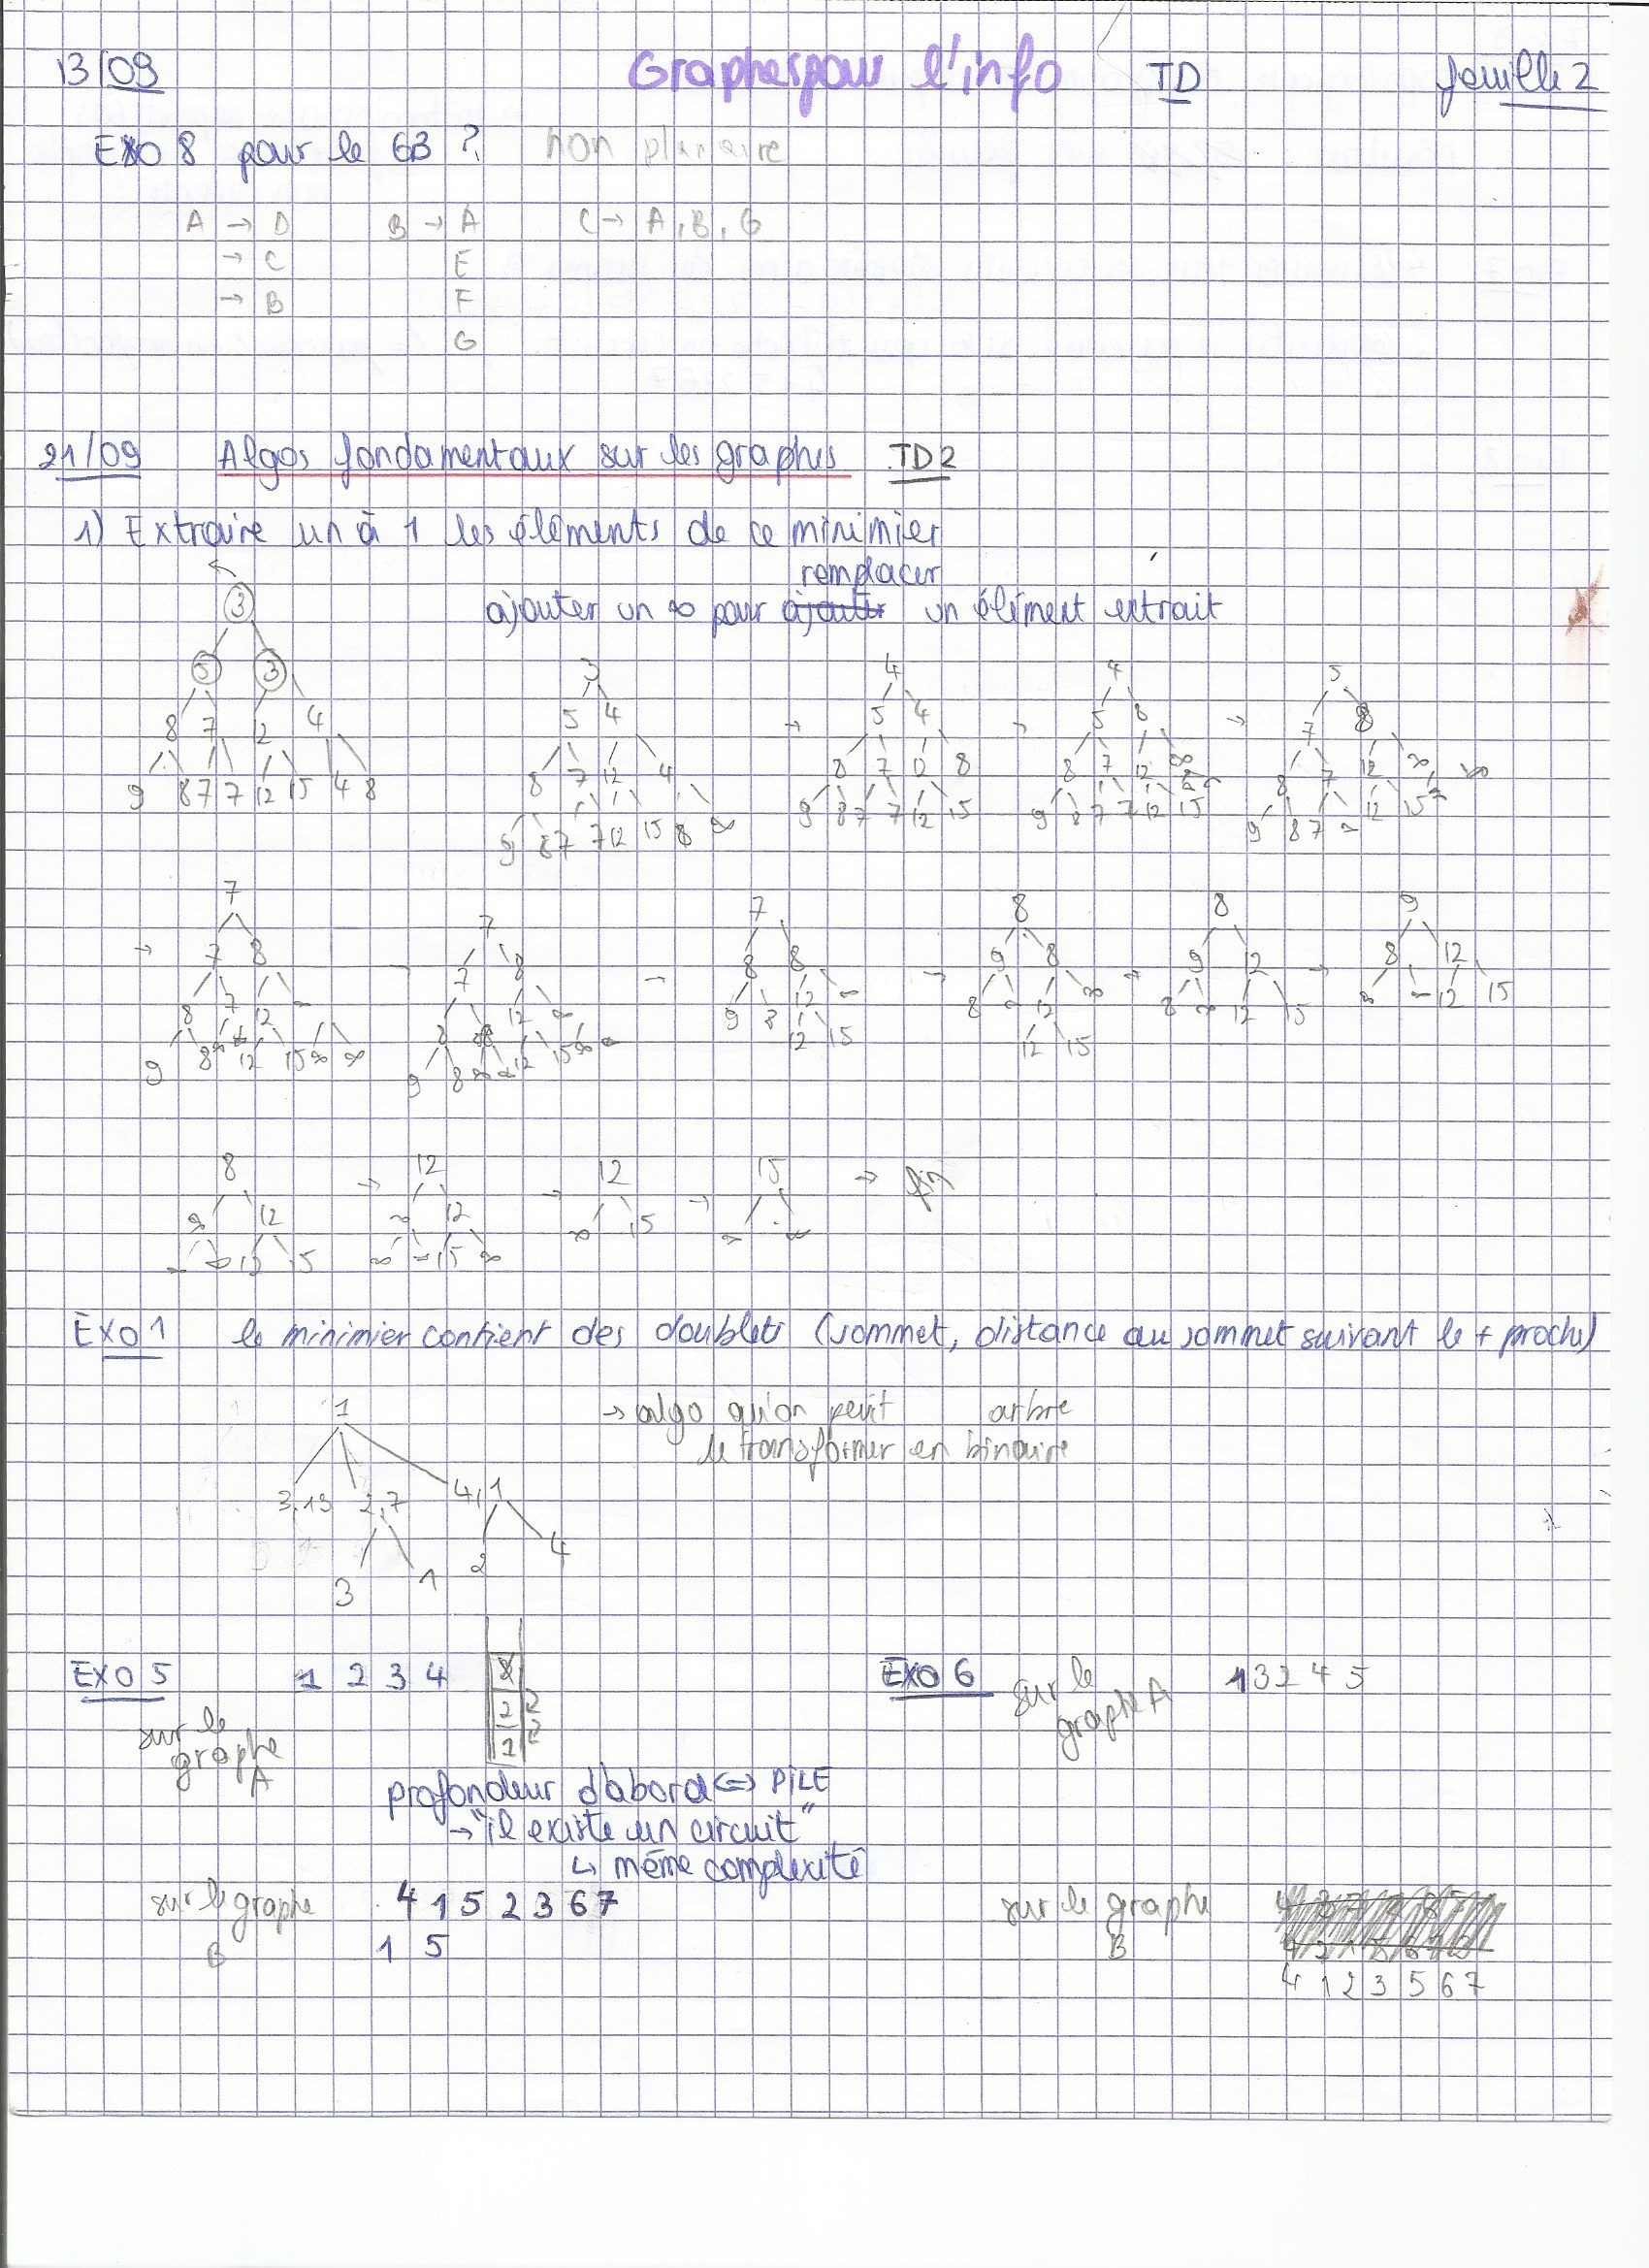 13/09 Graphes pour l'info TD feuille 2
EXO 8 pour le G3 ? non planaire
A → D B → A C → A, B, G
→ C E
→ B F
G
21/09 Algos fondamentaux sur les graphes TD2
1) Extraire un à 1 les éléments de ce minimier
remplacer
ajouter un ∞ pour ajouter un élément extrait
3
5 3
8 7 12 4
9 8 7 7 12 15 4 8
3
5 4
8 7 12 4
9 8 7 7 12 15 8 ∞
→ 4
5 4
8 7 12 8
9 8 7 7 12 15
→ 4
5 8
8 7 12 ∞
9 8 7 7 12 15
→ 5
7 8
8 7 12 ∞
9 8 7 ∞ 12 15
→ 7
7 8
8 7 12 ∞
9 8 12 15 ∞ ∞
7
7 8
8 12 ∞
9 8 ∞ ∞ 12 15 ∞ ∞
7
8 8
9 8 12 ∞
12 15
→ 8
9 8
8 ∞ 12 ∞
12 15
→ 8
9 12
8 ∞ 12 15
→ 9
8 12
∞ ∞ 12 15
8
9 12
∞ ∞ 12 15
→ 12
∞ 12
∞ ∞ 15 ∞
→ 12
∞ 15
→ 15
∞ ∞
→ fin
EXO 1 le minimier contient des doublets (sommet, distance au sommet suivant le + proche)
1 → algo qu'on peut arbre
le transformer en binaire
3,13 2,7 4,1
2 4
3 1
EXO 5 1 2 3 4 EXO 6 sur le graphe A 1 3 2 4 5
sur le
graphe
A
2
1
profondeur d'abord <=> PILE
→ "il existe un circuit"
↳ même complexité
sur le graphe 4 1 5 2 3 6 7 sur le graphe
B 1 5 B
4 1 2 3 5 6 7